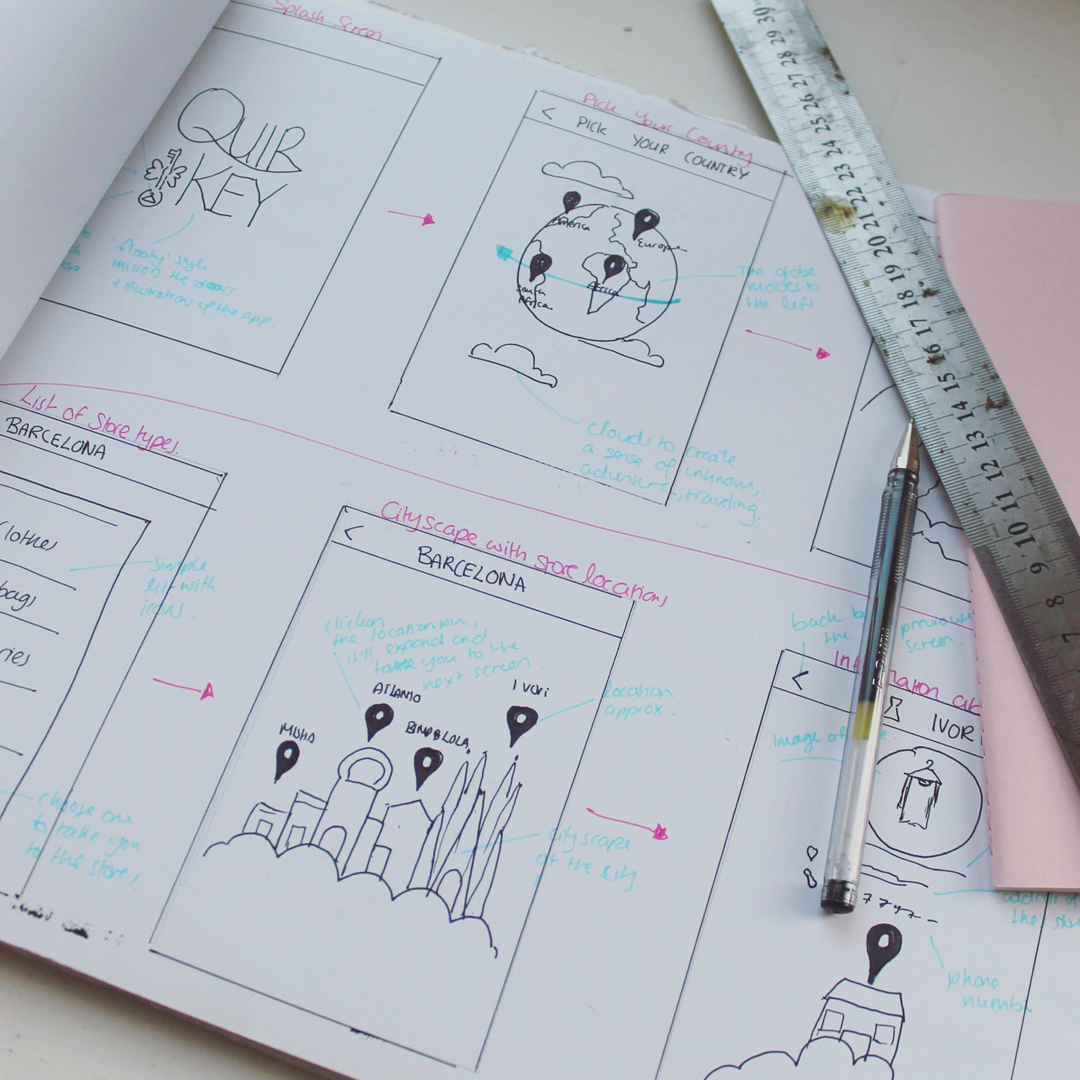 Splash Screen
QUIR
KEY
'floaty' style
mirrors the
+ illustration of the app.
Pick Your Country
< PICK YOUR COUNTRY
America
Europe
South
Africa.
Africa
The globe
moves to
the left.
clouds to create
a sense of unknown,
adventure, traveling.
List of Store types.
BARCELONA
clothes
bags
ries
simple
list with
icons.
choose one
to take you
to the store,
Cityscape with store locations
<
BARCELONA
click on
the location pin,
it'll expand and
take you to the
next screen.
MOHO
ATLANTO
BIMBOLOLA
IVORI
location
approx.
cityscape
of the city.
back b
the
previous
screen.
<
IVORI
image of
address of
the
phone
numb
30 29 28 27 26 25 24 23 22 21 20 19 18 17 16 15 14 13 12 11 10 9 8 7